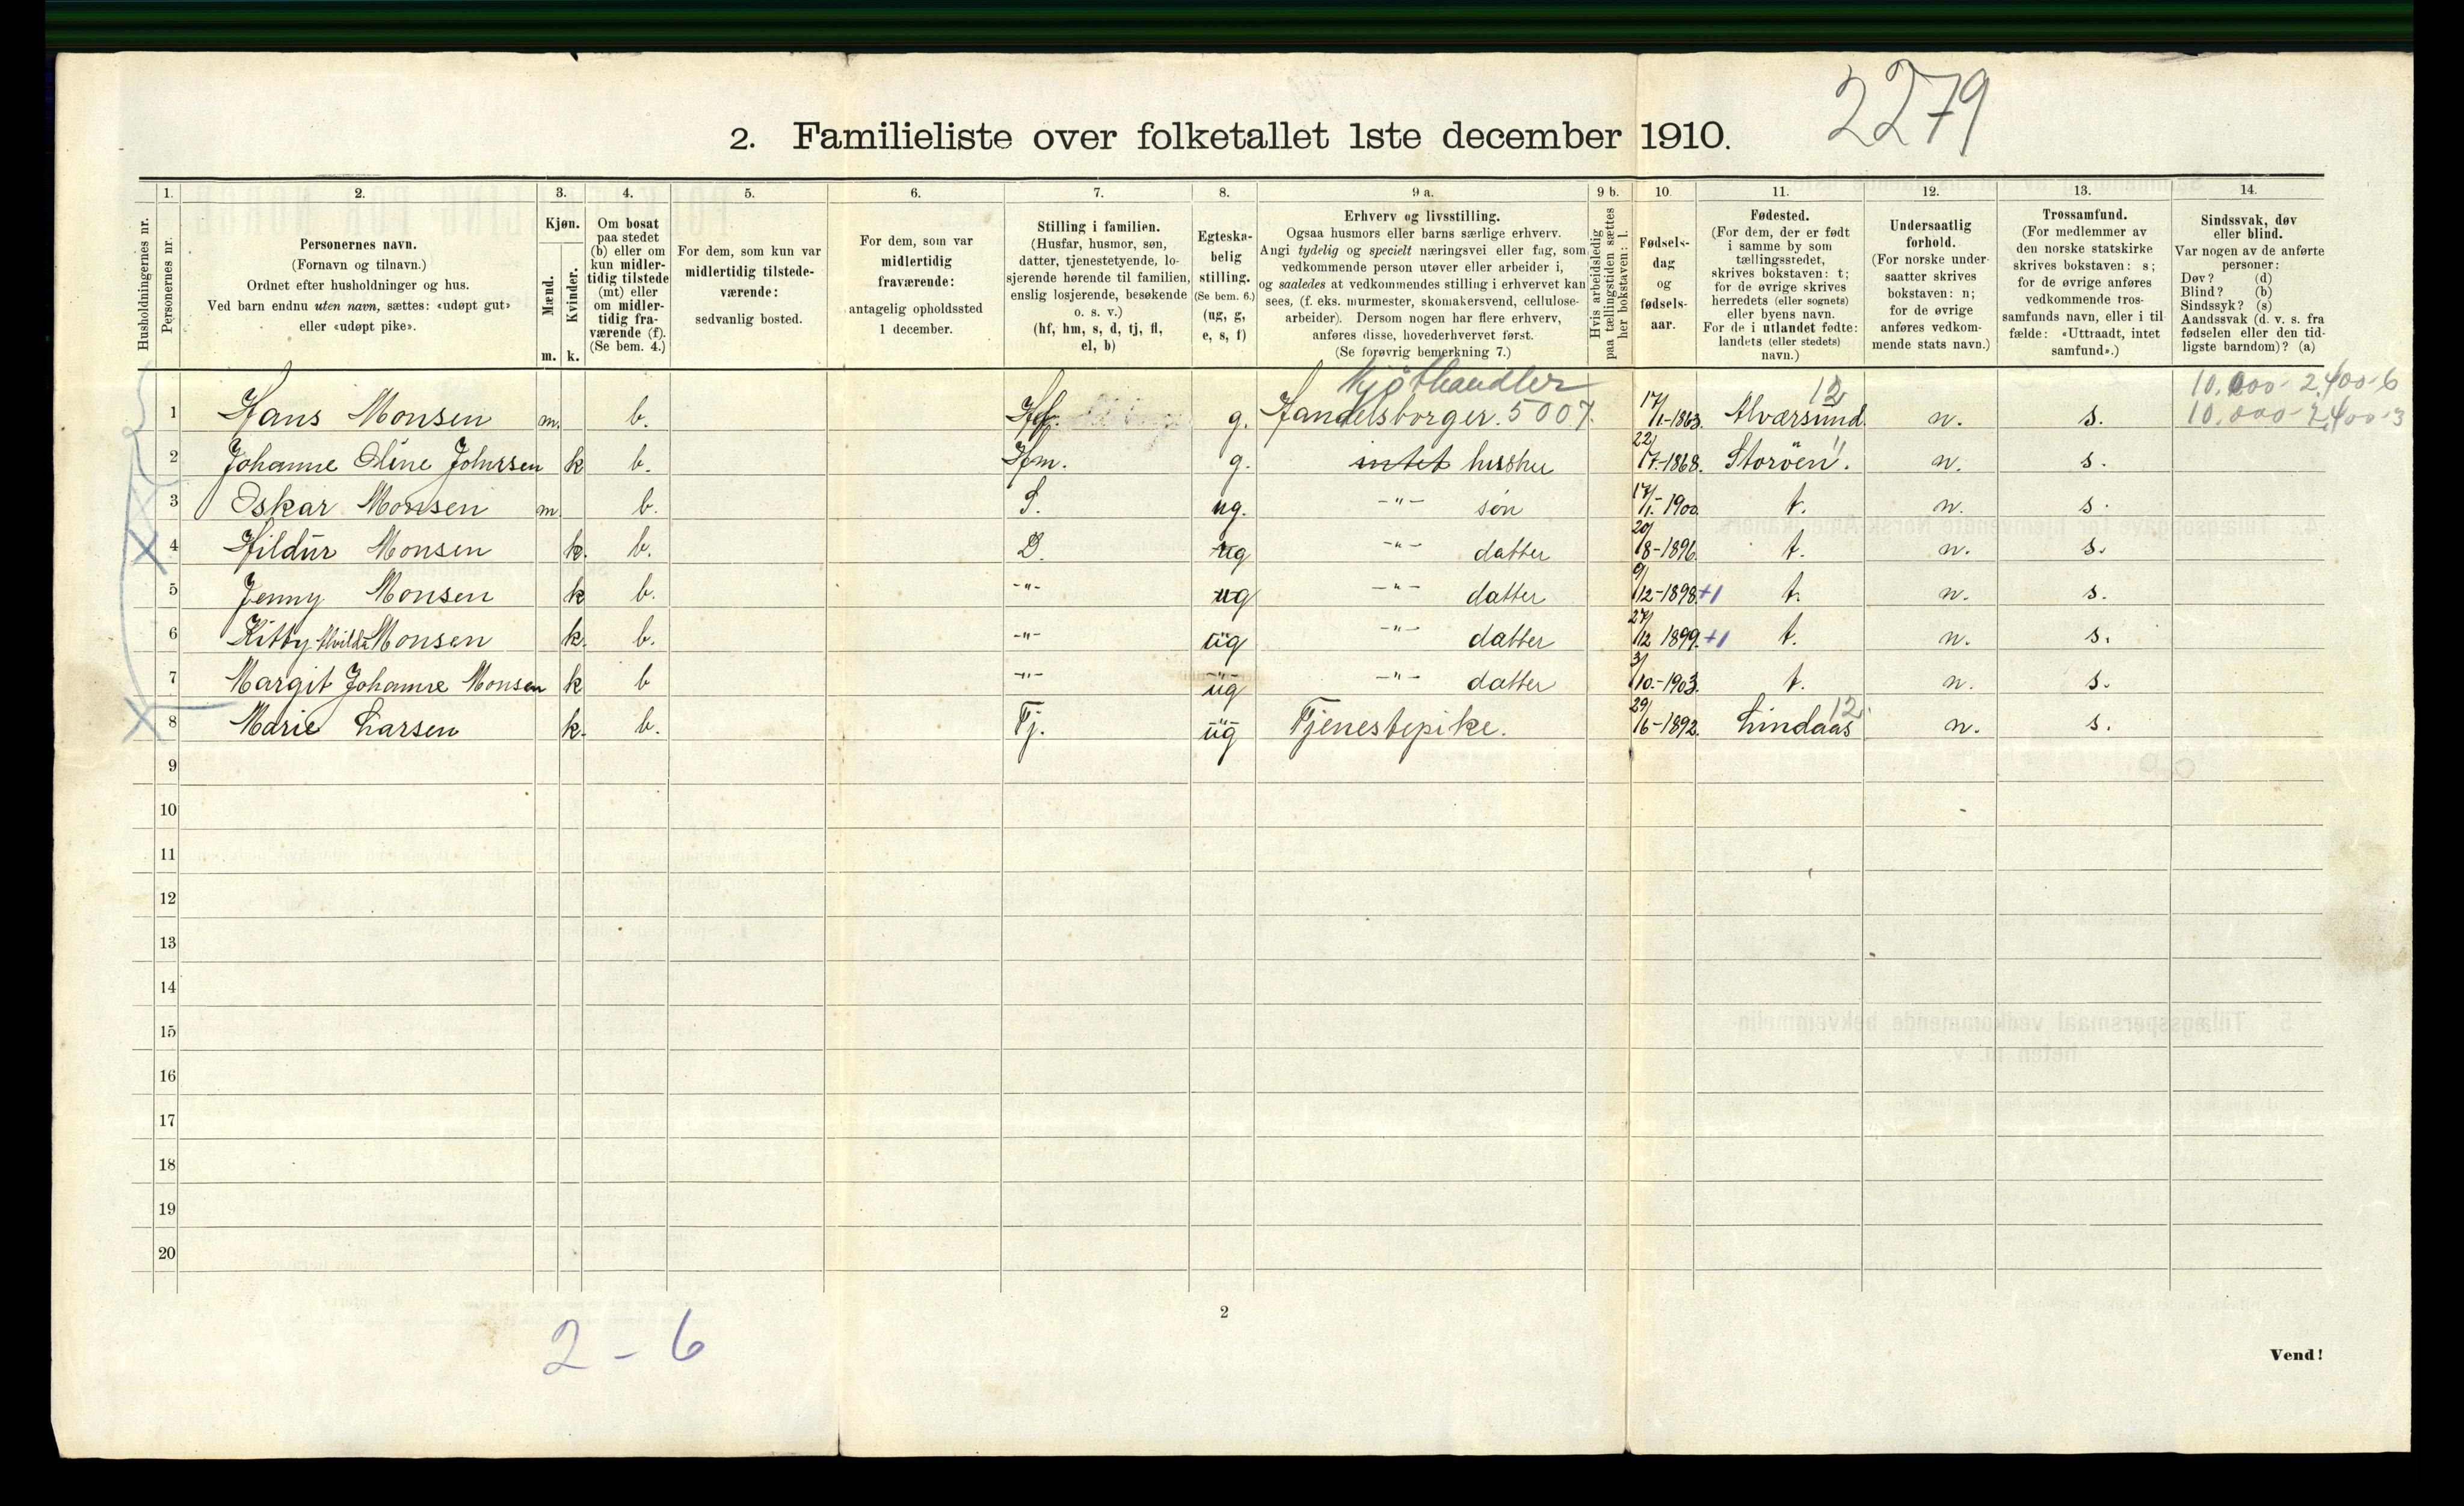 2279
2. Familieliste over folketallet 1ste december 1910.
Husholdningernes nr.
1. Personernes nr.
2. Personernes navn.
(Fornavn og tilnavn.)
Ordnet efter husholdninger og hus.
Ved barn endnu uten navn, sættes: «udøpt gut»
eller «udøpt pike».
3. Kjøn.
Mænd. m.
Kvinder. k.
4. Om bosat
paa stedet
(b) eller om
kun midler-
tidig tilstede
(mt) eller
om midler-
tidig fra-
værende (f).
(Se bem. 4.)
5. For dem, som kun var
midlertidig tilstede-
værende:
sedvanlig bosted.
6. For dem, som var
midlertidig
fraværende:
antagelig opholdssted
1 december.
7. Stilling i familien.
(Husfar, husmor, søn,
datter, tjenestetyende, lo-
sjerende hørende til familien,
enslig losjerende, besøkende
o. s. v.)
(hf, hm, s, d, tj, fl,
el, b)
8. Egteska-
belig
stilling.
(Se bem. 6.)
(ug, g,
e, s, f)
9 a. Erhverv og livsstilling.
Ogsaa husmors eller barns særlige erhverv.
Angi tydelig og specielt næringsvei eller fag, som
vedkommende person utøver eller arbeider i,
og saaledes at vedkommendes stilling i erhvervet kan
sees, (f. eks. murmester, skomakersvend, cellulose-
arbeider). Dersom nogen har flere erhverv,
anføres disse, hovederhvervet først.
(Se forøvrig bemerkning 7.)
9 b. Hvis arbeidsledig
paa tællingstiden sættes
her bokstaven: l.
10. Fødsels-
dag
og
fødsels-
aar.
11. Fødested.
(For dem, der er født
i samme by som
tællingsstedet,
skrives bokstaven: t;
for de øvrige skrives
herredets (eller sognets)
eller byens navn.
For de i utlandet fødte:
landets (eller stedets)
navn.)
12. Undersaatlig
forhold.
(For norske under-
saatter skrives
bokstaven: n;
for de øvrige
anføres vedkom-
mende stats navn.)
13. Trossamfund.
(For medlemmer av
den norske statskirke
skrives bokstaven: s;
for de øvrige anføres
vedkommende tros-
samfunds navn, eller i til-
fælde: «Uttraadt, intet
samfund».)
14. Sindssvak, døv
eller blind.
Var nogen av de anførte
personer:
Døv? (d)
Blind? (b)
Sindssyk? (s)
Aandssvak (d. v. s. fra
fødselen eller den tid-
ligste barndom)? (a)
Kjøthandler 12 10.000-2.400-6
1 Hans Monsen m. b. Hf. g. Handelsborger. 5007. 17/1-1863. Alværsund n. s. 10.000-2.400-3
2 Johanne Oline Johnssen k b. Hm. g. intet hustru 22/7-1868. Storøen. 11 n. s.
3 Oskar Monsen m b. S. ug. -"- søn 17/1-1900. t. n. s.
4 Hildur Monsen k. b. D. ug -"- datter 20/8-1896. t. n. s.
5 Jenny Monsen k b. -"- ug -"- datter 9/12-1898. +1 t. n. s.
6 Kitty Alvilde Monsen k. b. -"- ug -"- datter 27/12 1899. +1 t. n. s.
7 Margit Johanne Monsen k b -"- ug -"- datter 3/10-1903. t. n. s.
8 Marie Larsen k. b. Tj. ug Tjenestepike. 29/6-1892. Lindaas 12 n. s.
9
10
11
12
13
14
15
16
17
18
19
20
2
2-6
Vend!